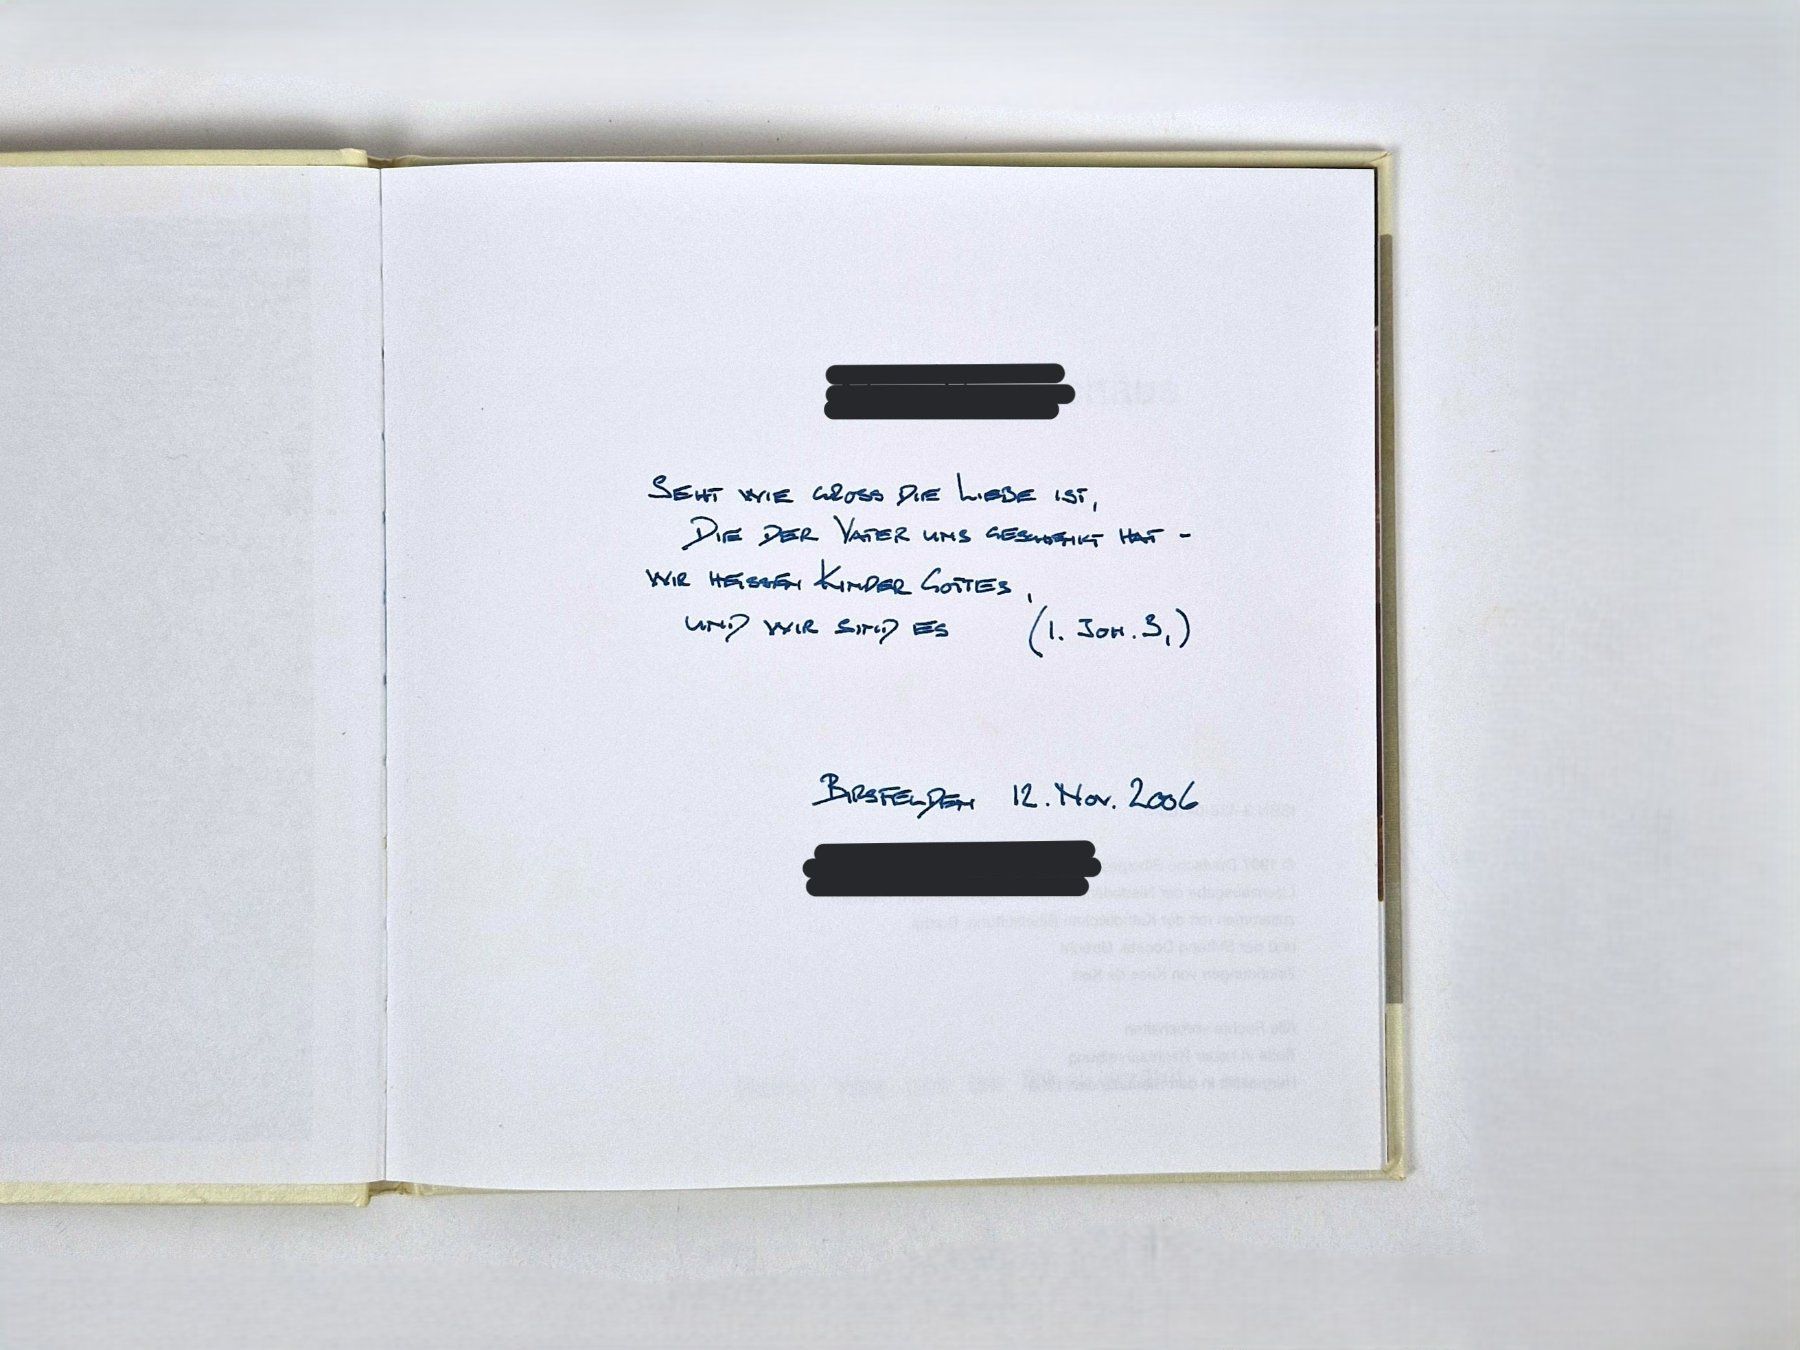 Seht wie gross die Liebe ist,
Die der Vater uns geschenkt hat -
wir heissen Kinder Gottes,
und wir sind es (1. Joh. 3,)
Birsfelden 12. Nov. 2006